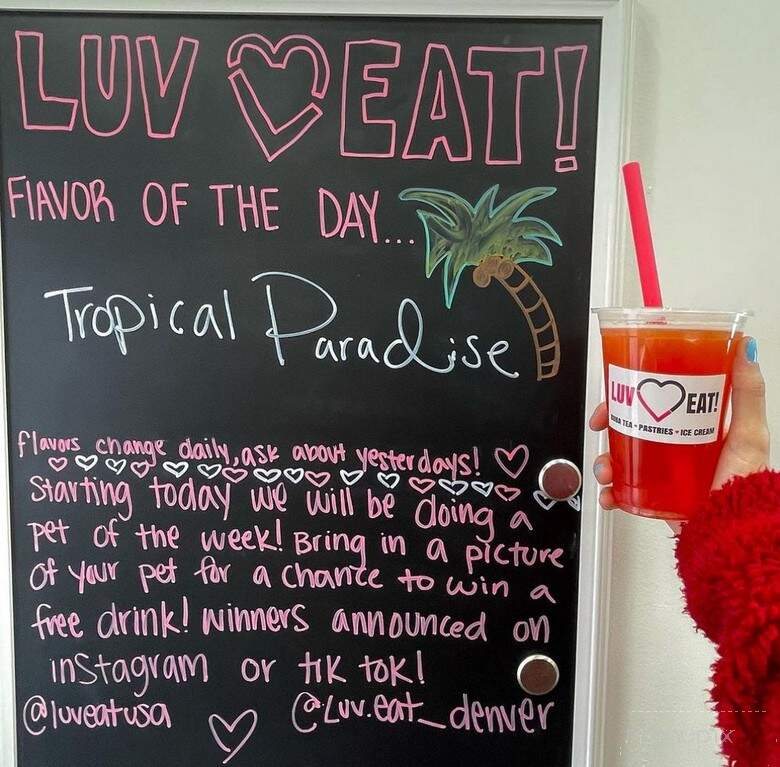 LUV EAT!
FLAVOR OF THE DAY...
Tropical Paradise
flavors change daily, ask about yesterdays!
Starting today we will be doing a
pet of the week! Bring in a picture
of your pet for a chance to win a
free drink! winners announced on
instagram or tik tok!
@luveatusa @Luv.eat_denver
LUV EAT!
BOBA TEA • PASTRIES • ICE CREAM